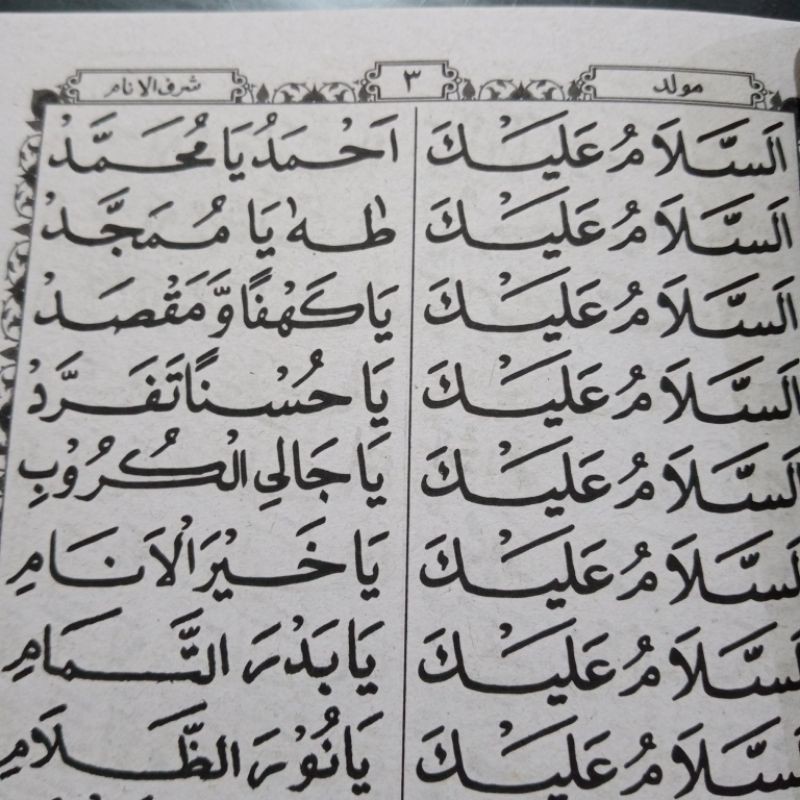 مولد ٣ شرف الانام
اَلسَّلَامُ عَلَيْكَ اَحْمَدُ يَا مُحَمَّدْ
اَلسَّلَامُ عَلَيْكَ طٰهٰ يَا مُمَجَّدْ
اَلسَّلَامُ عَلَيْكَ يَا كَهْفًا وَّمَقْصَدْ
اَلسَّلَامُ عَلَيْكَ يَا حُسْنًا تَفَرَّدْ
اَلسَّلَامُ عَلَيْكَ يَا جَالِي الْكُرُوْبِ
اَلسَّلَامُ عَلَيْكَ يَا خَيْرَ الْاَنَامِ
اَلسَّلَامُ عَلَيْكَ يَا بَدْرَ التَّمَامِ
اَلسَّلَامُ عَلَيْكَ يَا نُوْرَ الظَّلَامِ